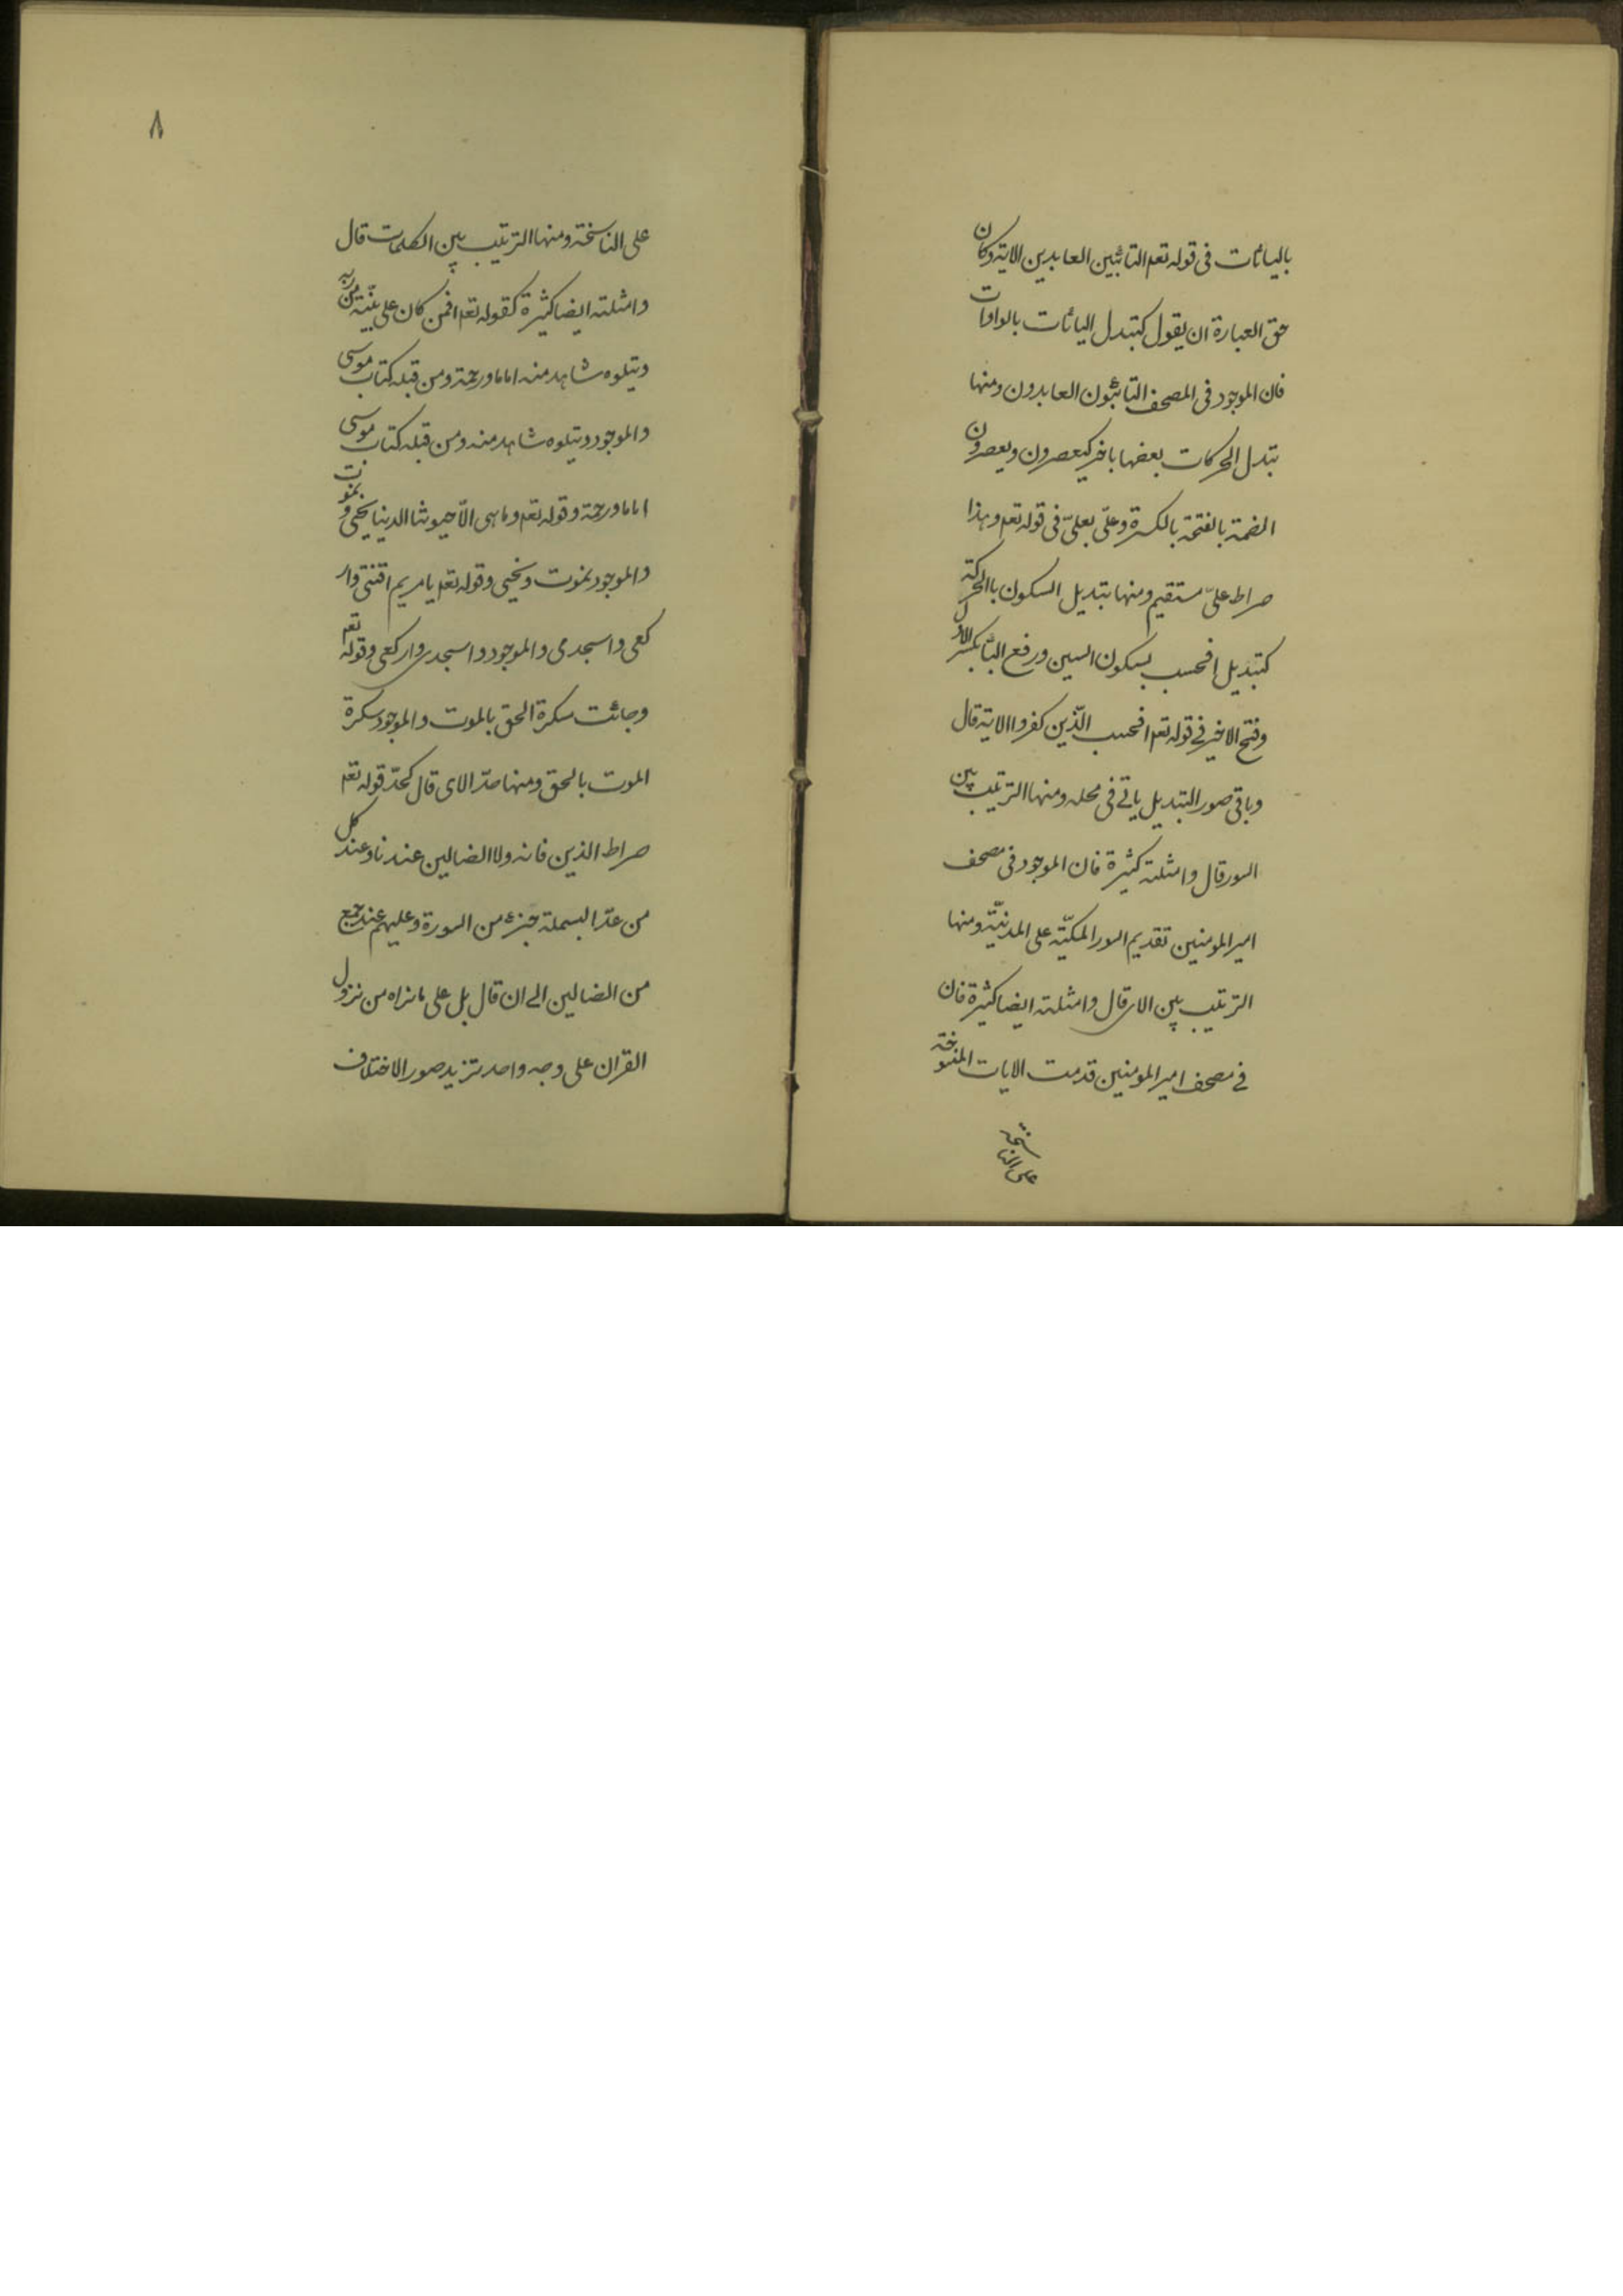 باليائات فى قوله تعم التائبين العابدين الاية وكان
حق العبارة ان يقول كتبدل اليائات بالواوات
فان الموجود فى المصحف التائبون العابدون ومنها
تبدل الحركات بعضها باخر كيعصرون ويعصرون
الضمة بالفتحة بالكسرة وعلىّ بعلىّ فى قوله تعم وهذا
صراط علىّ مستقيم ومنها تبديل السكون باالحركة
كتبديل افحسب بسكون السين ورفع الباء بكسر الاول
وفتح الاخير فى قوله تعم افحسب الذين كفروا الاية قال
وباقى صور التبديل ياتى فى محله ومنها الترتيب بين
السور قال وامثلته كثيرة فان الموجود فى مصحف
امير المومنين تقديم السور المكيّة على المدنيّة ومنها
الترتيب بين الاى قال وامثلته ايضا كثيرة فان
فى مصحف امير المومنين قدمت الايات المنسوخة
على الناسخة
٨
على الناسخة ومنها الترتيب بين الكلمات قال
وامثلته ايضا كثيرة كقوله تعم افمن كان على بيّنة من ربه
ويتلوه شاهد منه اماما ورحمة ومن قبله كتاب موسى
والموجود ويتلوه شاهد منه ومن قبله كتاب موسى
اماما ورحمة وقوله تعم وما هى الّا حيوتنا الدنيا نحيى و نموت
والموجود نموت ونحيى وقوله تعم يا مريم اقنتى وار
كعى واسجدى والموجود واسجدى واركعى وقوله تعم
وجائت سكرة الحق بالموت والموجود سكرة
الموت بالحق ومنها عدّ الاى قال كعدّ قوله تعم
صراط الذين فانه ولا الضالين عندنا وعند كل
من عدّ البسملة جزء من السورة وعليهم عند جمع
من الضالين الى ان قال بل على ما نراه من نزول
القران على وجه واحد تزيد صور الاختلاف